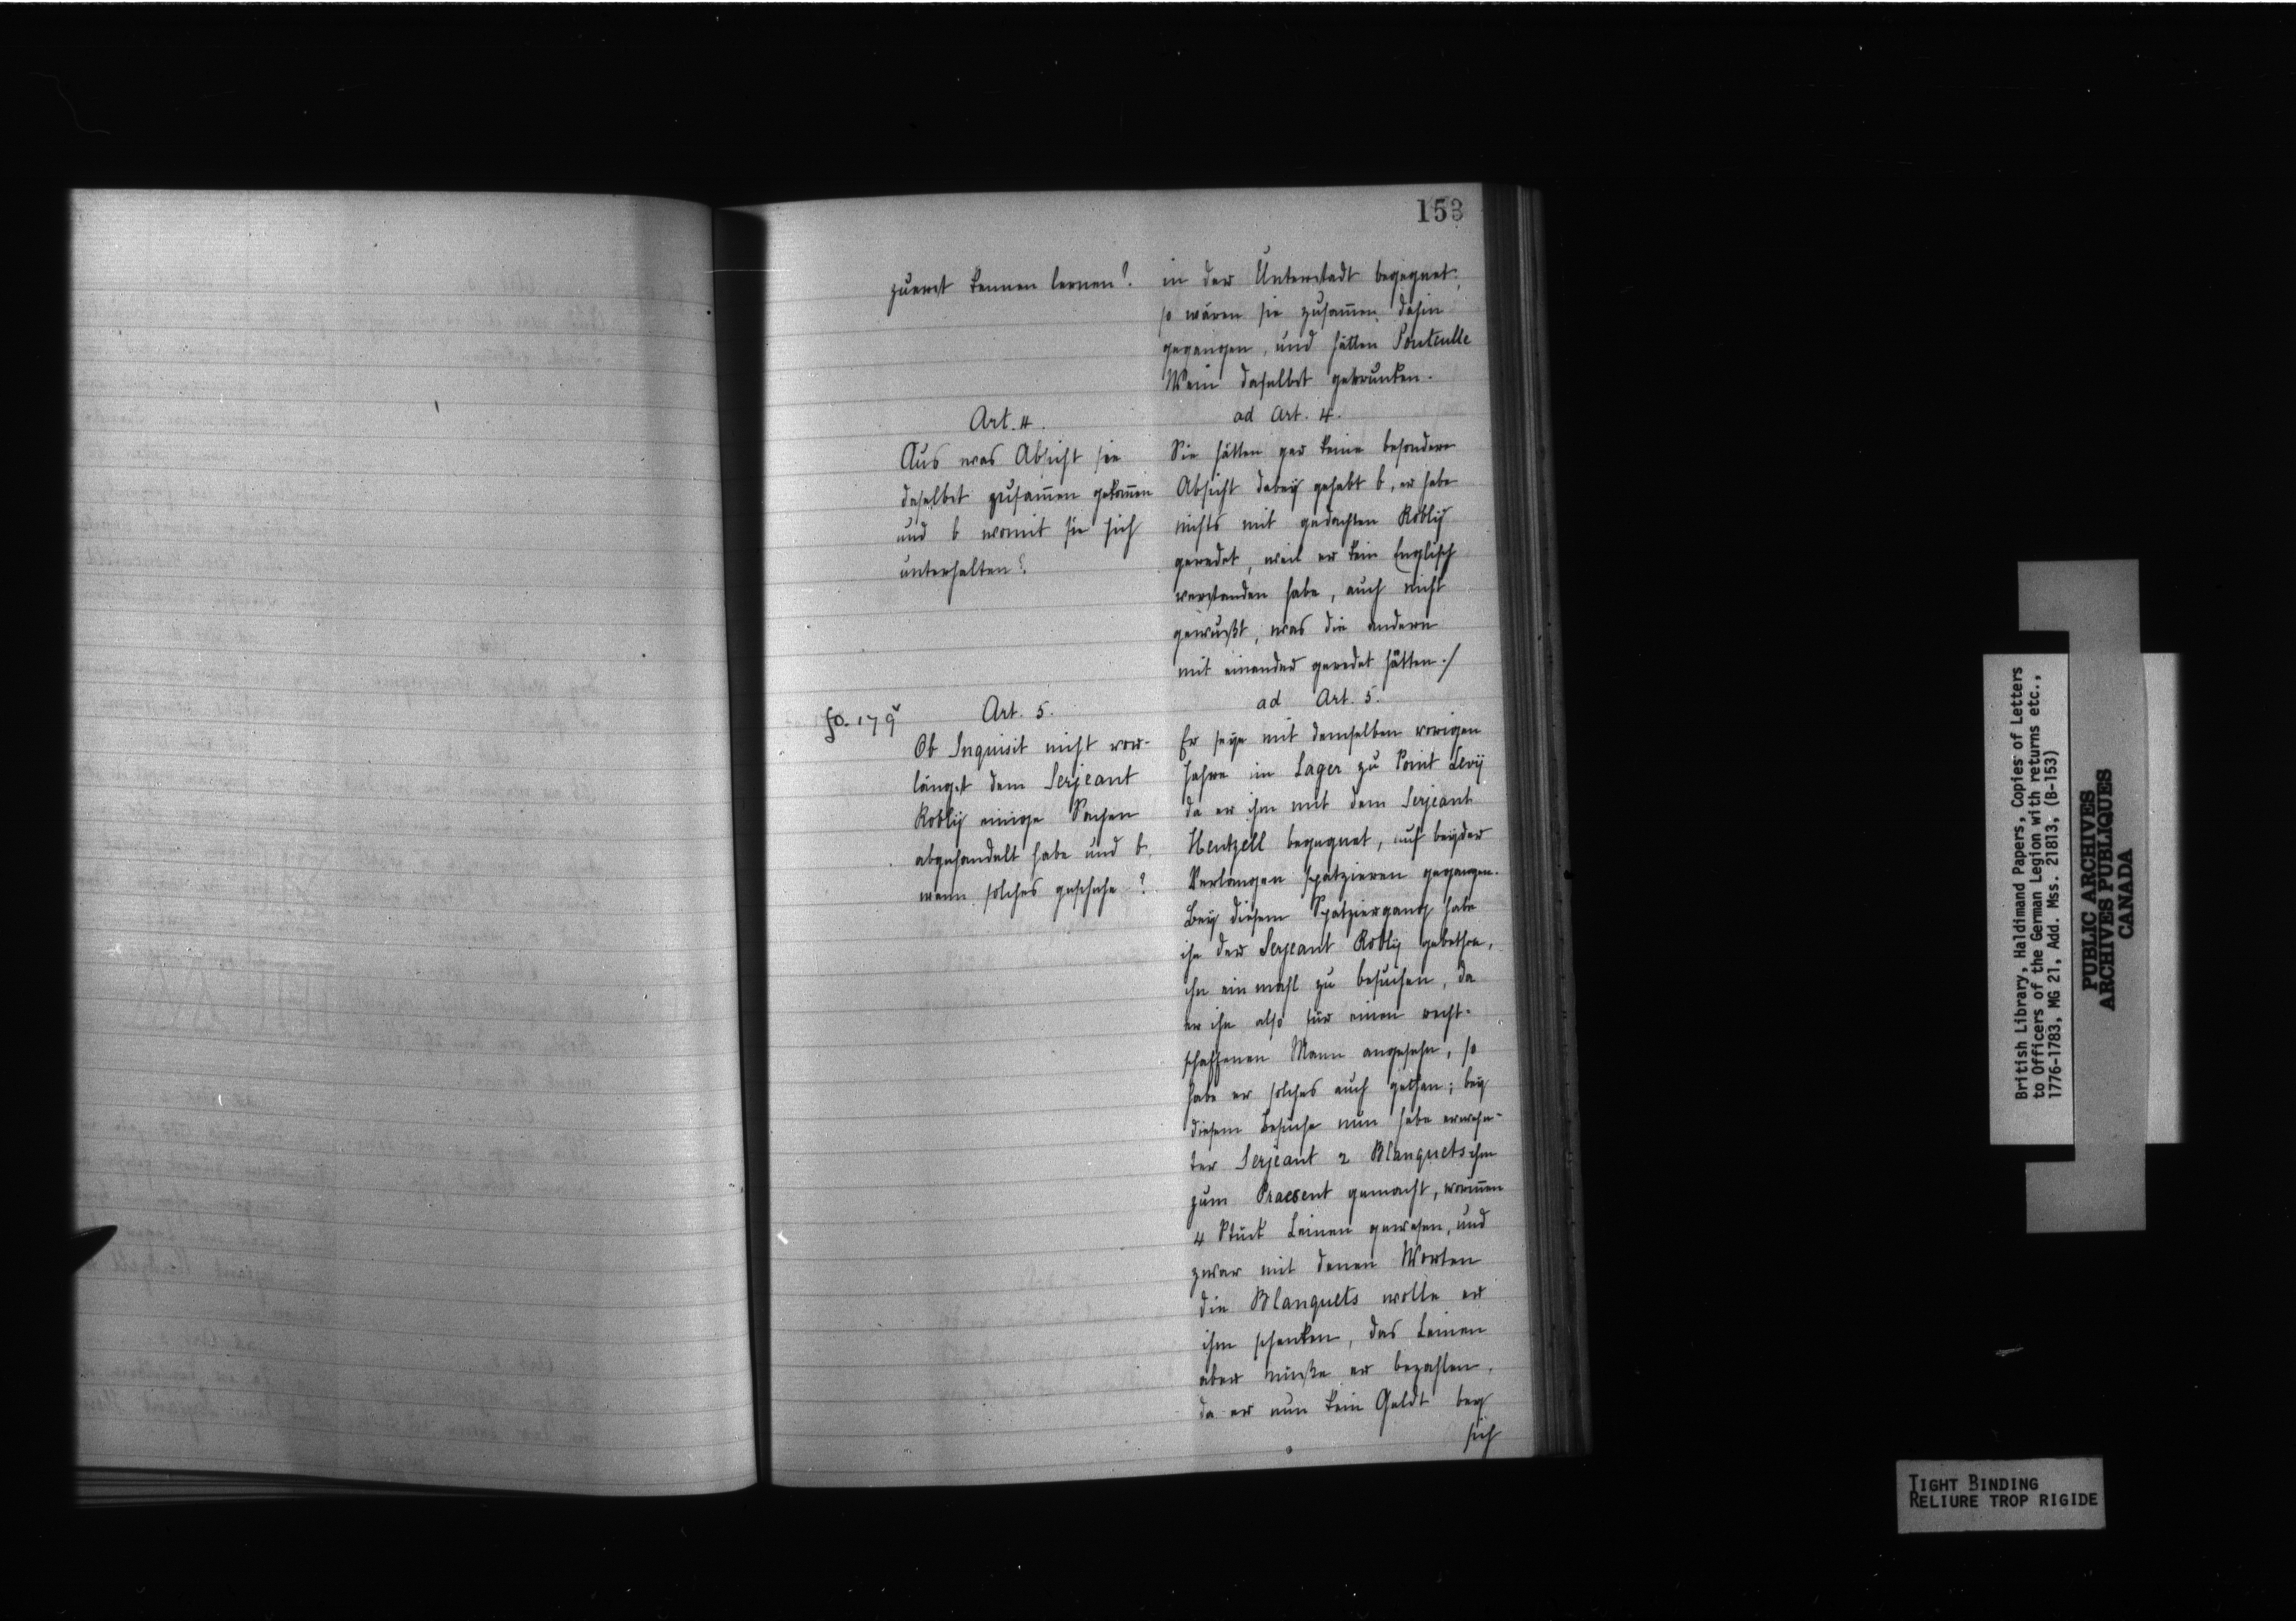 153
zuerst kennen lernen?
in der Unterstadt begegnet,
so wären sie zusam̄en dahin
gegangen, und hätten
Wein daselbst getrunken.
Art. 4.
Aus was Absicht sie
daselbst zusam̄en gekom̄en
und b womit sie sich
unterhalten?
ad Art. 4.
Sie hätten gar keine besondere
Absicht dabeÿ gehabt b, er habe
nichts mit gedachten Roblÿ
geredet, weil er kein Englisch
verstanden habe, auch nicht
gewußt, was die andern
mit einander geredet hätten./
fo. 179
Art. 5.
Ob Inquisit nicht vor-
längst dem Serjeant
Roblÿ einige Sachen
abgehandelt habe und b.
wann solches geschehe?
ad Art. 5.
Er seÿe mit demselben vorigen
Jahre im Lager zu Point Levÿ
da er ihm mit dem Serjeant
Hentzell begegnet, auf beÿder
Verlangen spatzieren gegangen.
Beÿ diesem Spatziergang habe
ihn der Serjeant Roblÿ gebethen,
ihn ein mahl zu besuchen, da
er ihn also für einen recht-
schaffenen Mann angesehn, so
habe er solches auch gethan; beÿ
diesem Besuche nun habe erwehn-
ter Serjeant 2 Blanquets ihm
zum Praesent gemacht, worin̄en
4 Stück Leinen gewesen, und
zwar mit denen Worten
die Blanquets wolle er
ihm schenken, das Leinen
aber müße er bezahlen,
da er nun kein Geldt beÿ
sich
British Library, Haldimand Papers, Copies of Letters
to Officers of the German Legion with returns etc.,
1776-1783, MG 21, Add. Mss. 21813, (B-153)
PUBLIC ARCHIVES
ARCHIVES PUBLIQUES
CANADA
TIGHT BINDING
RELIURE TROP RIGIDE